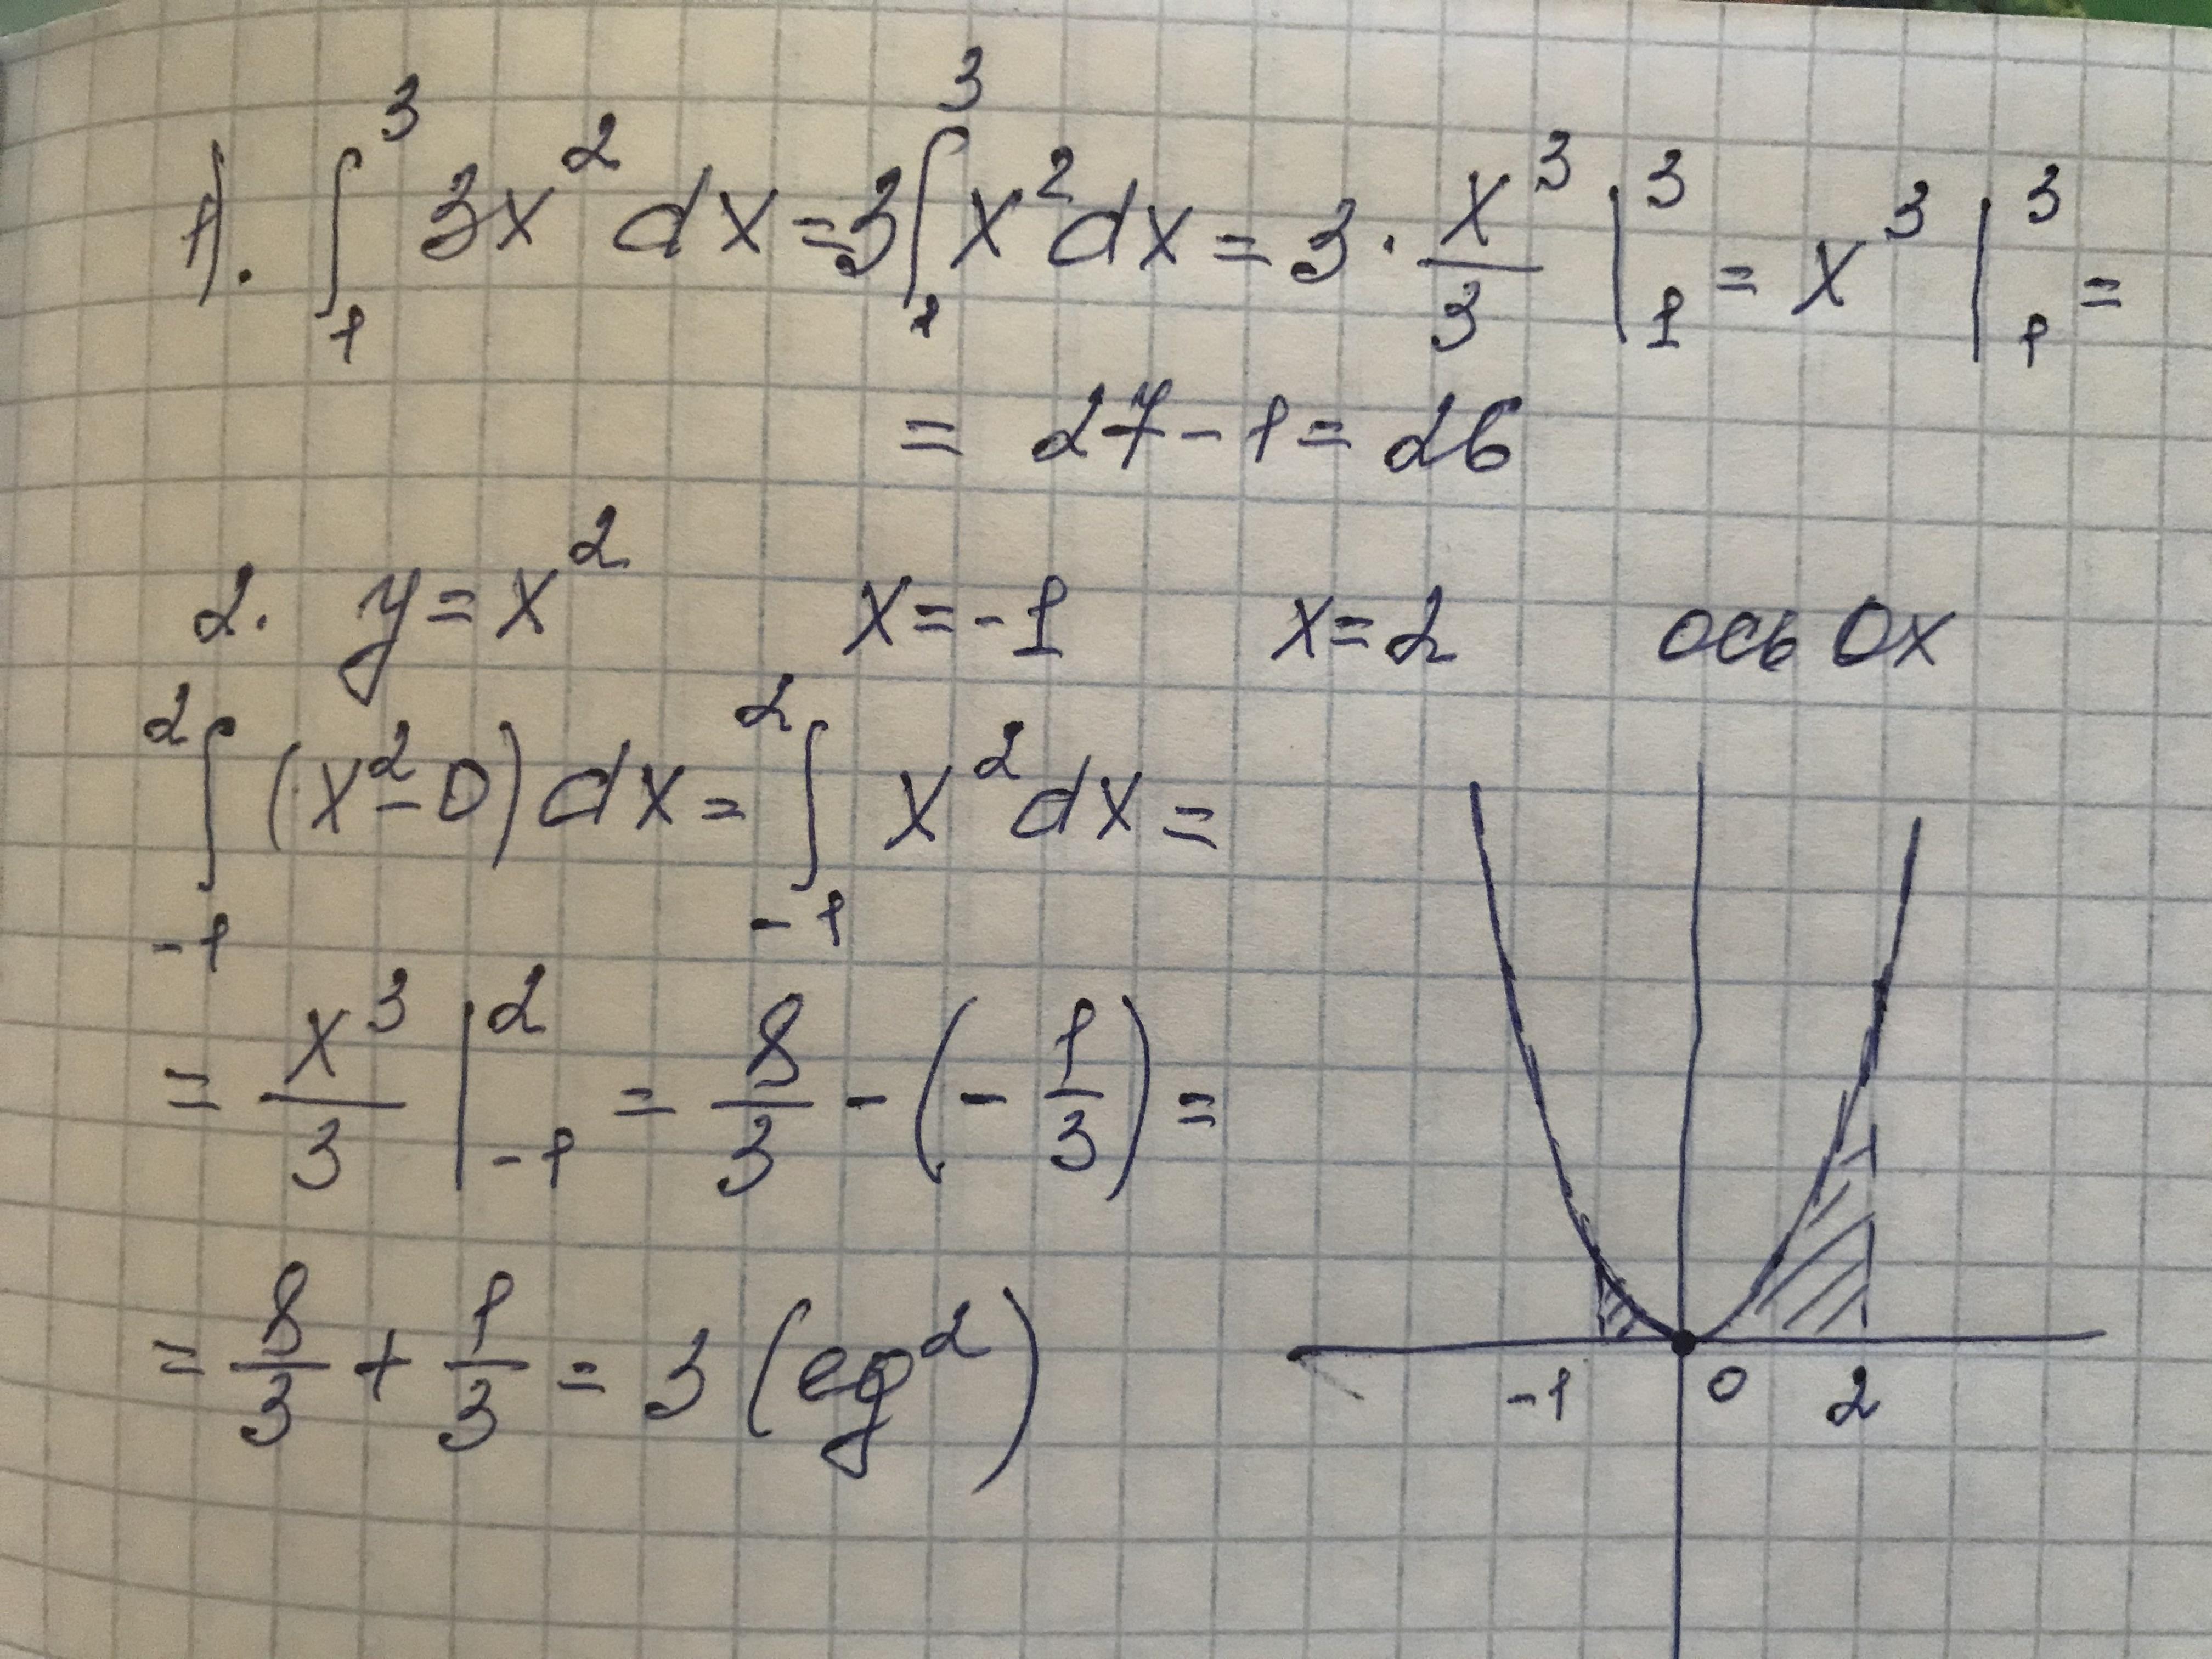 1). ∫₁³ 3x² dx = 3∫₁³ x² dx = 3 · x³/3 |₁³ = x³ |₁³ =
= 27 - 1 = 26
2. y = x² x = -1 x = 2 ось Ox
∫₋₁² (x² - 0) dx = ∫₋₁² x² dx =
= x³/3 |₋₁² = 8/3 - (- 1/3) =
= 8/3 + 1/3 = 3 (eg²)
-1 0 2